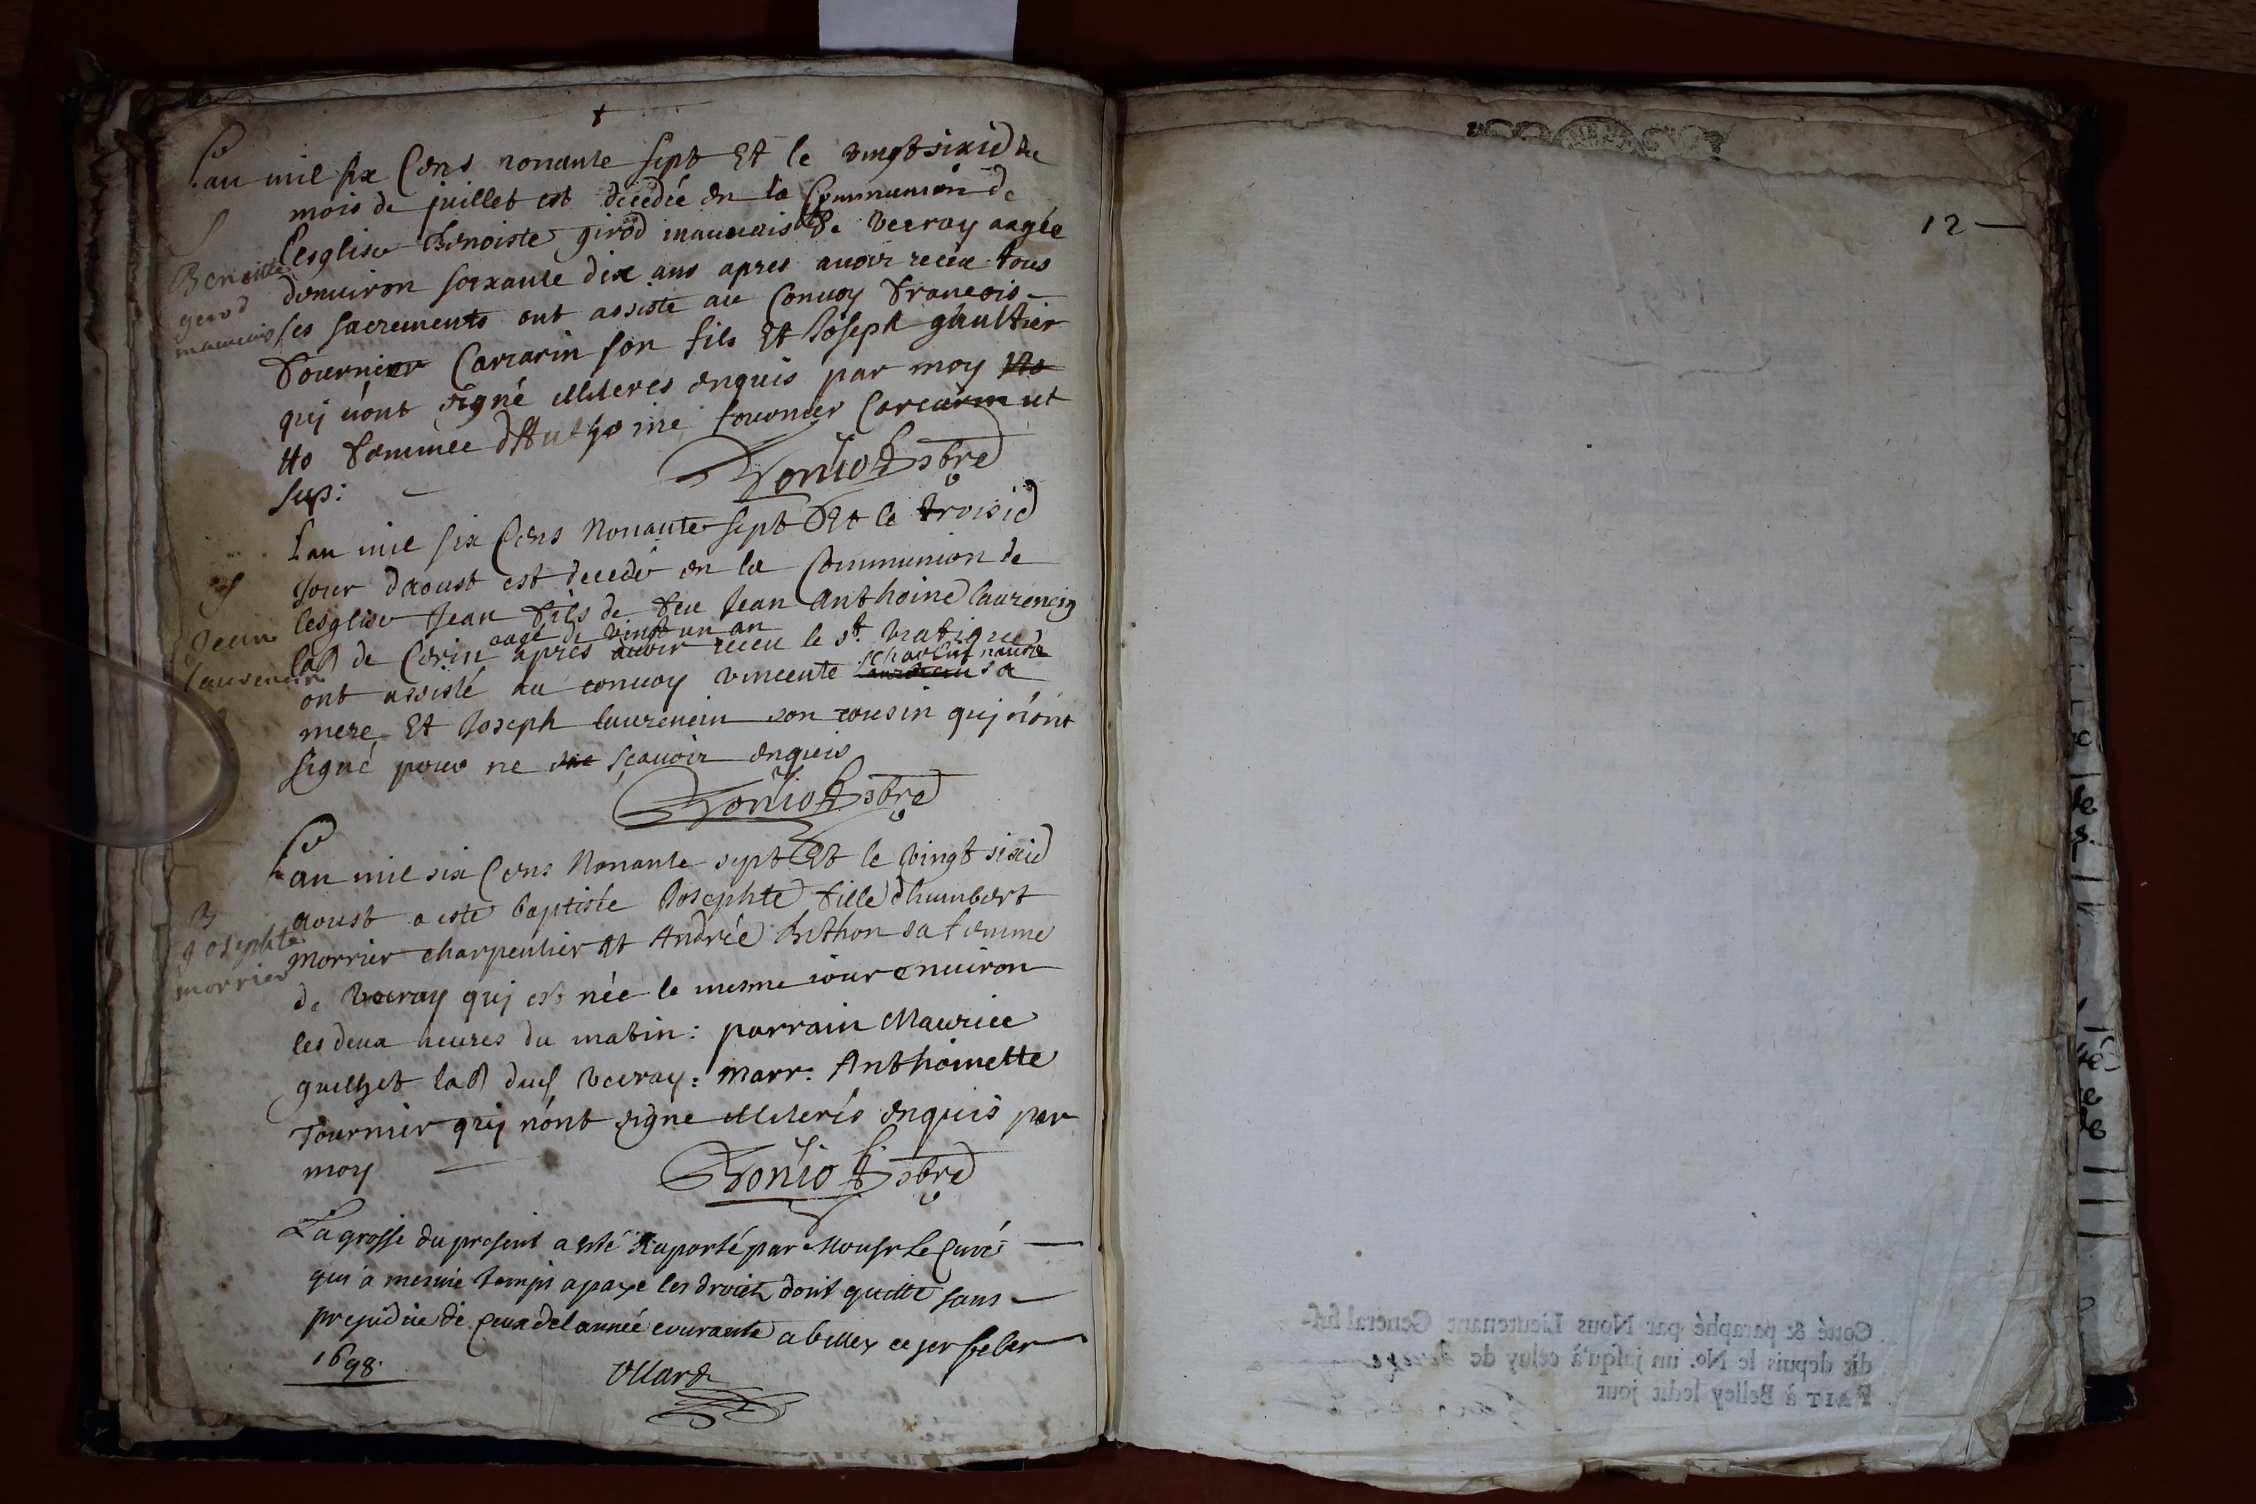 Lan mil six Cens nonante sept Et le vingt sixie du
mois de juillet est decedée en la Communion de
lesglise Benoiste girod mauuais de veeray aagée
denuiron soixante dix ans apres auoir receu tous
ses sacrements ont assisté au Conuoy Francois
Fournier Carcarin son fils Et Joseph gaultier
quj n'ont signé illiteres enquis par moy
femmée dAnthoine fournier Carcarin ut
sup:
Benoiste
girod
mauuais
Lan mil six Cens Nonante sept Et le troisie
Jour daoust est decedé en la Communion de
lesglise Jean fils de feu Jean Anthoine laurencin
lab de Cerin aagé de vingt un an apres auoir receu le st. viatique
ont assisté au conuoy vincente sa
mere Et Joseph laurencin son cousin quj n'ont
signé pour ne scauoir enquis
Jean
laurencin
Lan mil six Cens Nonante sept Et le vingt sixie
aoust a esté baptisée Josephte fille dhumbert
Morrier charpentier Et Andrée Bithon sa femme
de veeray quj est née le mesme iour enuiron
les deux heures du matin: parrain Maurice
guilhet lab dud veeray: Marr: Anthoinette
Fournier quj n'ont signe illiterés enquis par
moy
B
Josephte
morrier
La grosse du present a esté Raporté par Monsr Le Curé
qui a mesme temps a payé les droits dont quitte sans
prejudice de Ceux de lannée courante a belley ce jer feber
1698.
12
Cotté & paraphé par Nous Lieutenant General sus-
dit depuis le No. un jusqu'à celuy de douze
FAIT à Belley ledit jour